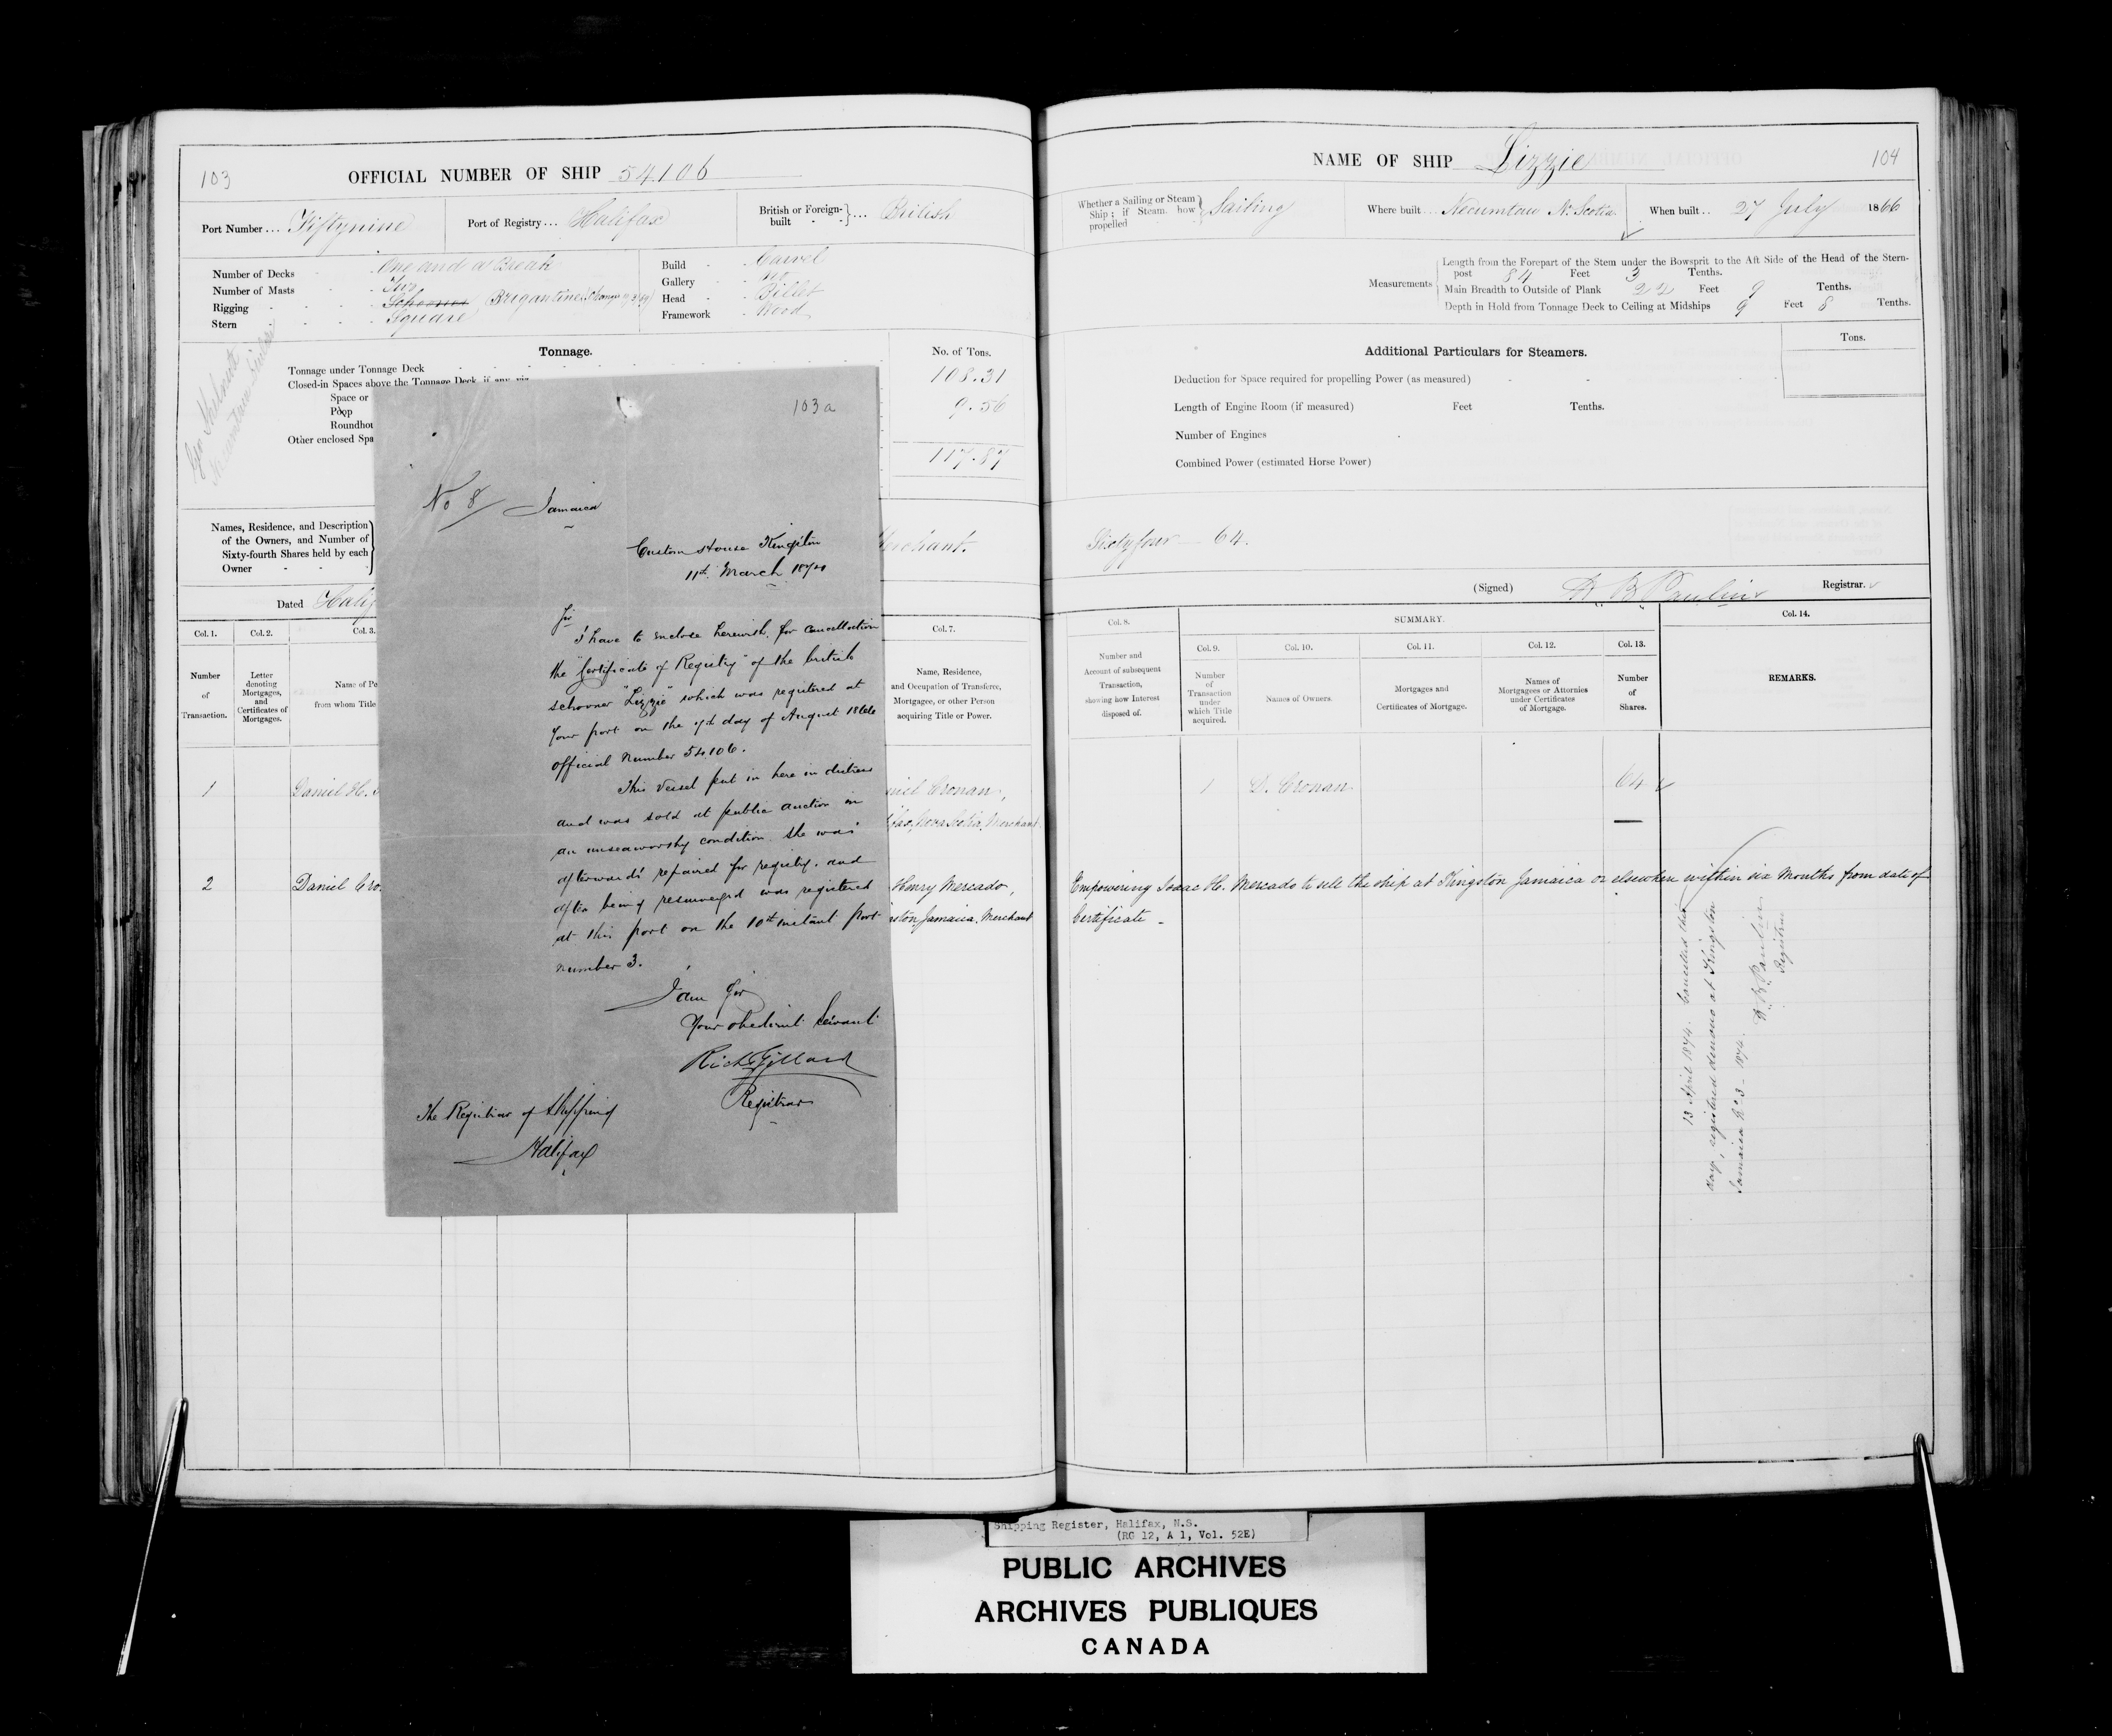 103
OFFICIAL NUMBER OF SHIP 54.106
Port Number ... Fiftynine
Port of Registry ... Halifax
British or Foreign-built - - } ... British
Number of Decks - One and a Break
Number of Masts - Two
Rigging - - - - Schooner Brigantine
Stern - - - - Square
Build - Carvel
Gallery - No
Head - Billet
Framework - Wood
Tonnage.
No. of Tons.
Tonnage under Tonnage Deck
108.31
Closed-in Spaces above the Tonnage Deck, if any, viz.
Space or
9.56
Poop
Roundhou
Other enclosed Spa
117.87
Names, Residence, and Description
of the Owners, and Number of
Sixty-fourth Shares held by each
Owner - - -
Merchant.
Dated Halif
Col. 1.
Col. 2.
Col. 3.
Col. 7.
Number
of
Transaction.
Letter
denoting
Mortgages,
and
Certificates of
Mortgages.
Name of Pe
from whom Title
Name, Residence,
and Occupation of Transferee,
Mortgagee, or other Person
acquiring Title or Power.
1
Daniel H.
niel Cronan,
fax, Nova Scotia, Merchant
2
Daniel Cro
Henry Mercado,
ston Jamaica. Merchant
103a
No 8/ Jamaica
Custom House Kingston
11th March 1874
Sir
I have to enclose herewith, for cancellation
the "Certificate of Registry" of the british
schooner "Lizzie" which was registered at
your port on the 7th day of August 1866
official number 54.106.
This vessel put in here in distress
and was sold at public auction in
an unseaworthy condition. She was
afterwards repaired for registry. and
after being resurveyed was registered
at this port on the 10th instant port
number 3.
I am Sir
Your obedient Servant
Richd Gillard
Registrar
The Registrar of Shipping
Halifax
NAME OF SHIP Lizzie
104
Whether a Sailing or Steam
Ship; if Steam, how
propelled
Sailing
Where built ... Necumtaw N. Scotia
When built .. 27 July 1866
Measurements
Length from the Forepart of the Stem under the Bowsprit to the Aft Side of the Head of the Stern-
post 84 Feet 3 Tenths.
Main Breadth to Outside of Plank 22 Feet 9 Tenths.
Depth in Hold from Tonnage Deck to Ceiling at Midships 9 Feet 8 Tenths.
Additional Particulars for Steamers.
Tons.
Deduction for Space required for propelling Power (as measured) - -
Length of Engine Room (if measured) Feet Tenths.
Number of Engines
Combined Power (estimated Horse Power)
Sixtyfour — 64.
(Signed) H B Paulin Registrar.
Col. 8.
SUMMARY.
Col. 14.
Col. 9.
Col. 10.
Col. 11.
Col. 12.
Col. 13.
Number and
Account of subsequent
Transaction,
showing how Interest
disposed of.
Number
of
Transaction
under
which Title
acquired.
Names of Owners.
Mortgages and
Certificates of Mortgage.
Names of
Mortgagees or Attornies
under Certificates
of Mortgage.
Number
of
Shares.
REMARKS.
1
D. Cronan
64
Empowering Isaac H. Mercado to sell the ship at Kingston Jamaica or elsewhere within six Months from date of
Certificate -
13 April 1874. Cancelled this
day, registered denovo at Kingston
Jamaica No 3 - 1874.
H B Paulin
Registrar
Shipping Register, Halifax, N.S.
(RG 12, A 1, Vol. 52E)
PUBLIC ARCHIVES
ARCHIVES PUBLIQUES
CANADA